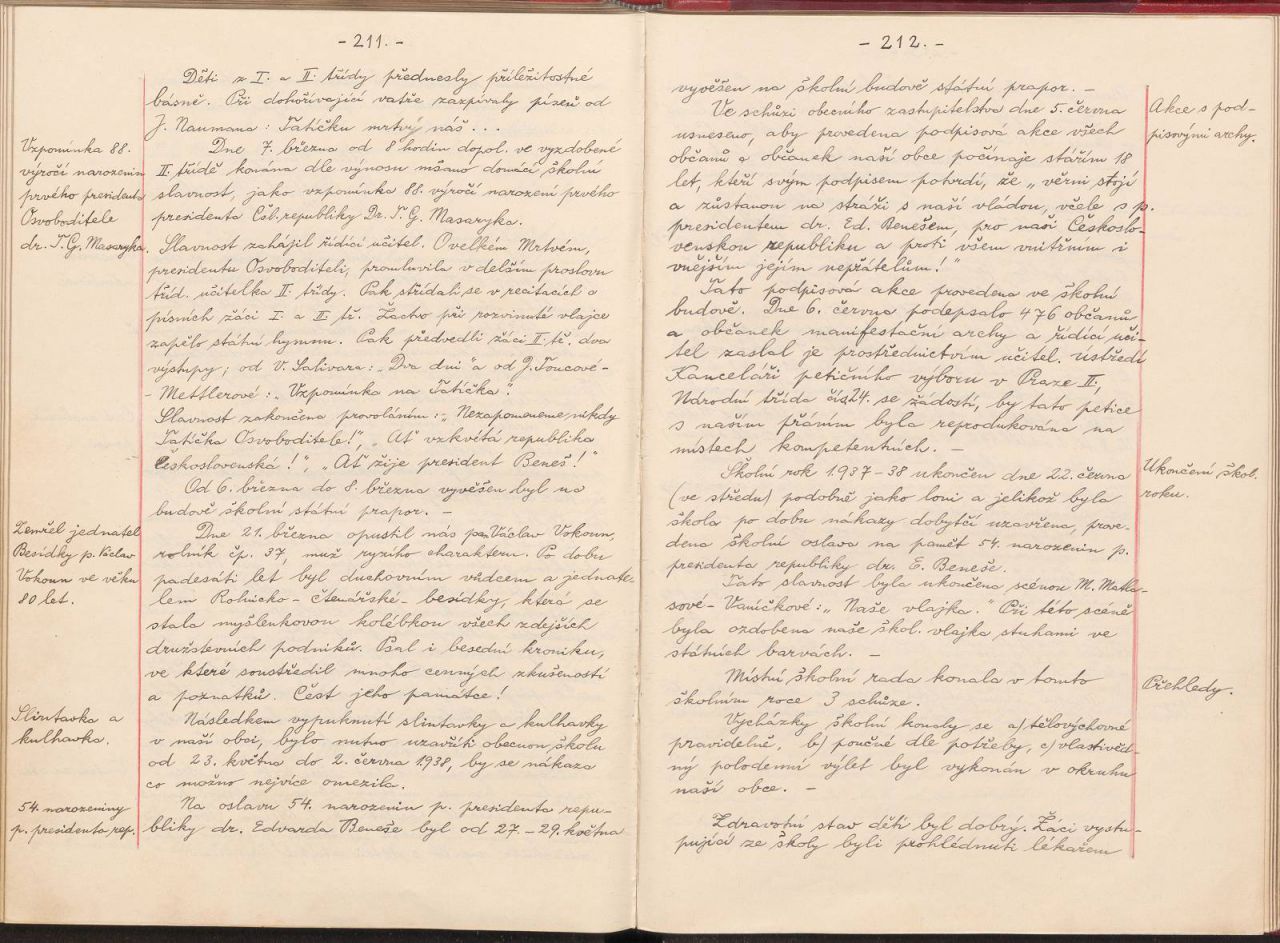 - 211. -
Děti z I. a II. třídy přednesly příležitostné
básně. Při dohořívající vatře zazpívaly píseň od
J. Naumana: Tatíčku mrtvý náš...
Vzpomínka 88.
výročí narozenin
prvého presidenta
Osvoboditele
dr. T. G. Masaryka.
Dne 7. března od 8 hodin dopol. ve vyzdobené
II. třídě konána dle výnosu mšano domácí školní
slavnost, jako vzpomínka 88. výročí narození prvého
presidenta Čsl. republiky Dr. T. G. Masaryka.
Slavnost zahájil řídící učitel. O velkém Mrtvém,
presidentu Osvoboditeli, promluvila v delším proslovu
tříd. učitelka II. třídy. Pak střídali se v recitacích a
písních žáci I. a II. tř. Žactvo při rozvinuté vlajce
zapělo státní hymnu. Pak předvedli žáci II. tř. dva
výstupy; od V. Salivara: „Dva dni" a od J. Toucové-
- Mettlerové: „Vzpomínka na Tatíčka".
Slavnost zakončena provoláním: „Nezapomeneme nikdy
Tatíčka Osvoboditele!", „Ať vzkvétá republika
Československá!", „Ať žije president Beneš!"
Od 6. března do 8. března vyvěšen byl na
budově školní státní prapor. -
Zemřel jednatel
Besídky p. Václav
Vokoun ve věku
80 let.
Dne 21. března opustil nás pan Václav Vokoun,
rolník čp. 37, muž ryzího charakteru. Po dobu
padesáti let byl duchovním vůdcem a jednate-
lem Rolnicko-čtenářské-besídky, která se
stala myšlenkovou kolébkou všech zdejších
družstevních podniků. Psal i besední kroniku,
ve které soustředil mnoho cenných zkušeností
a poznatků. Čest jeho památce!
Slintavka a
kulhavka.
Následkem vypuknutí slintavky a kulhavky
v naší obci, bylo nutno uzavříti obecnou školu
od 23. května do 2. června 1938, by se nákaza
co možno nejvíce omezila.
54. narozeniny
p. presidenta rep.
Na oslavu 54. narozenin p. presidenta repu-
bliky dr. Edvarda Beneše byl od 27. - 29. května
- 212. -
vyvěšen na školní budově státní prapor. -
Akce s pod-
pisovými archy.
Ve schůzi obecního zastupitelstva dne 5. června
usneseno, aby provedena podpisová akce všech
občanů a občanek naší obce počínaje stářím 18
let, kteří svým podpisem potvrdí, že „věrni stojí
a zůstanou na stráži s naší vládou, včele s p.
presidentem dr. Ed. Benešem, pro naši Českoslo-
venskou republiku a proti všem vnitřním i
vnějším jejím nepřátelům!"
Tato podpisová akce provedena ve školní
budově. Dne 6. června podepsalo 476 občanů
a občanek manifestační archy a řídící uči-
tel zaslal je prostřednictvím učitel. ústředí
Kanceláři petičního výboru v Praze II,
Národní třída čís. 24. se žádostí, by tato petice
s naším přáním byla reprodukována na
místech kompetentních. -
Ukončení škol.
roku.
Školní rok 1937-38 ukončen dne 22. června
(ve středu) podobně jako loni a jelikož byla
škola po dobu nákazy dobytčí uzavřena, prove-
dena školní oslava na paměť 54. narozenin p.
presidenta republiky dr. E. Beneše.
Tato slavnost byla ukončena scénou M. Matka-
sové-Vaníčkové: „Naše vlajka." Při této scéně
byla ozdobena naše škol. vlajka stuhami ve
státních barvách. -
Přehledy.
Místní školní rada konala v tomto
školním roce 3 schůze.
Vycházky školní konaly se a) tělovýchovné
pravidelně, b) poučné dle potřeby, c) vlastivěd-
ný polodenní výlet byl vykonán v okruhu
naší obce. -
Zdravotní stav dětí byl dobrý. Žáci vystu-
pující ze školy byli prohlédnuti lékařem